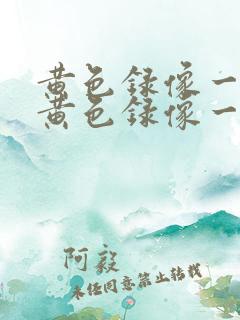 黄色録像一
黄色録像一
阿毅
未经同意禁止转载